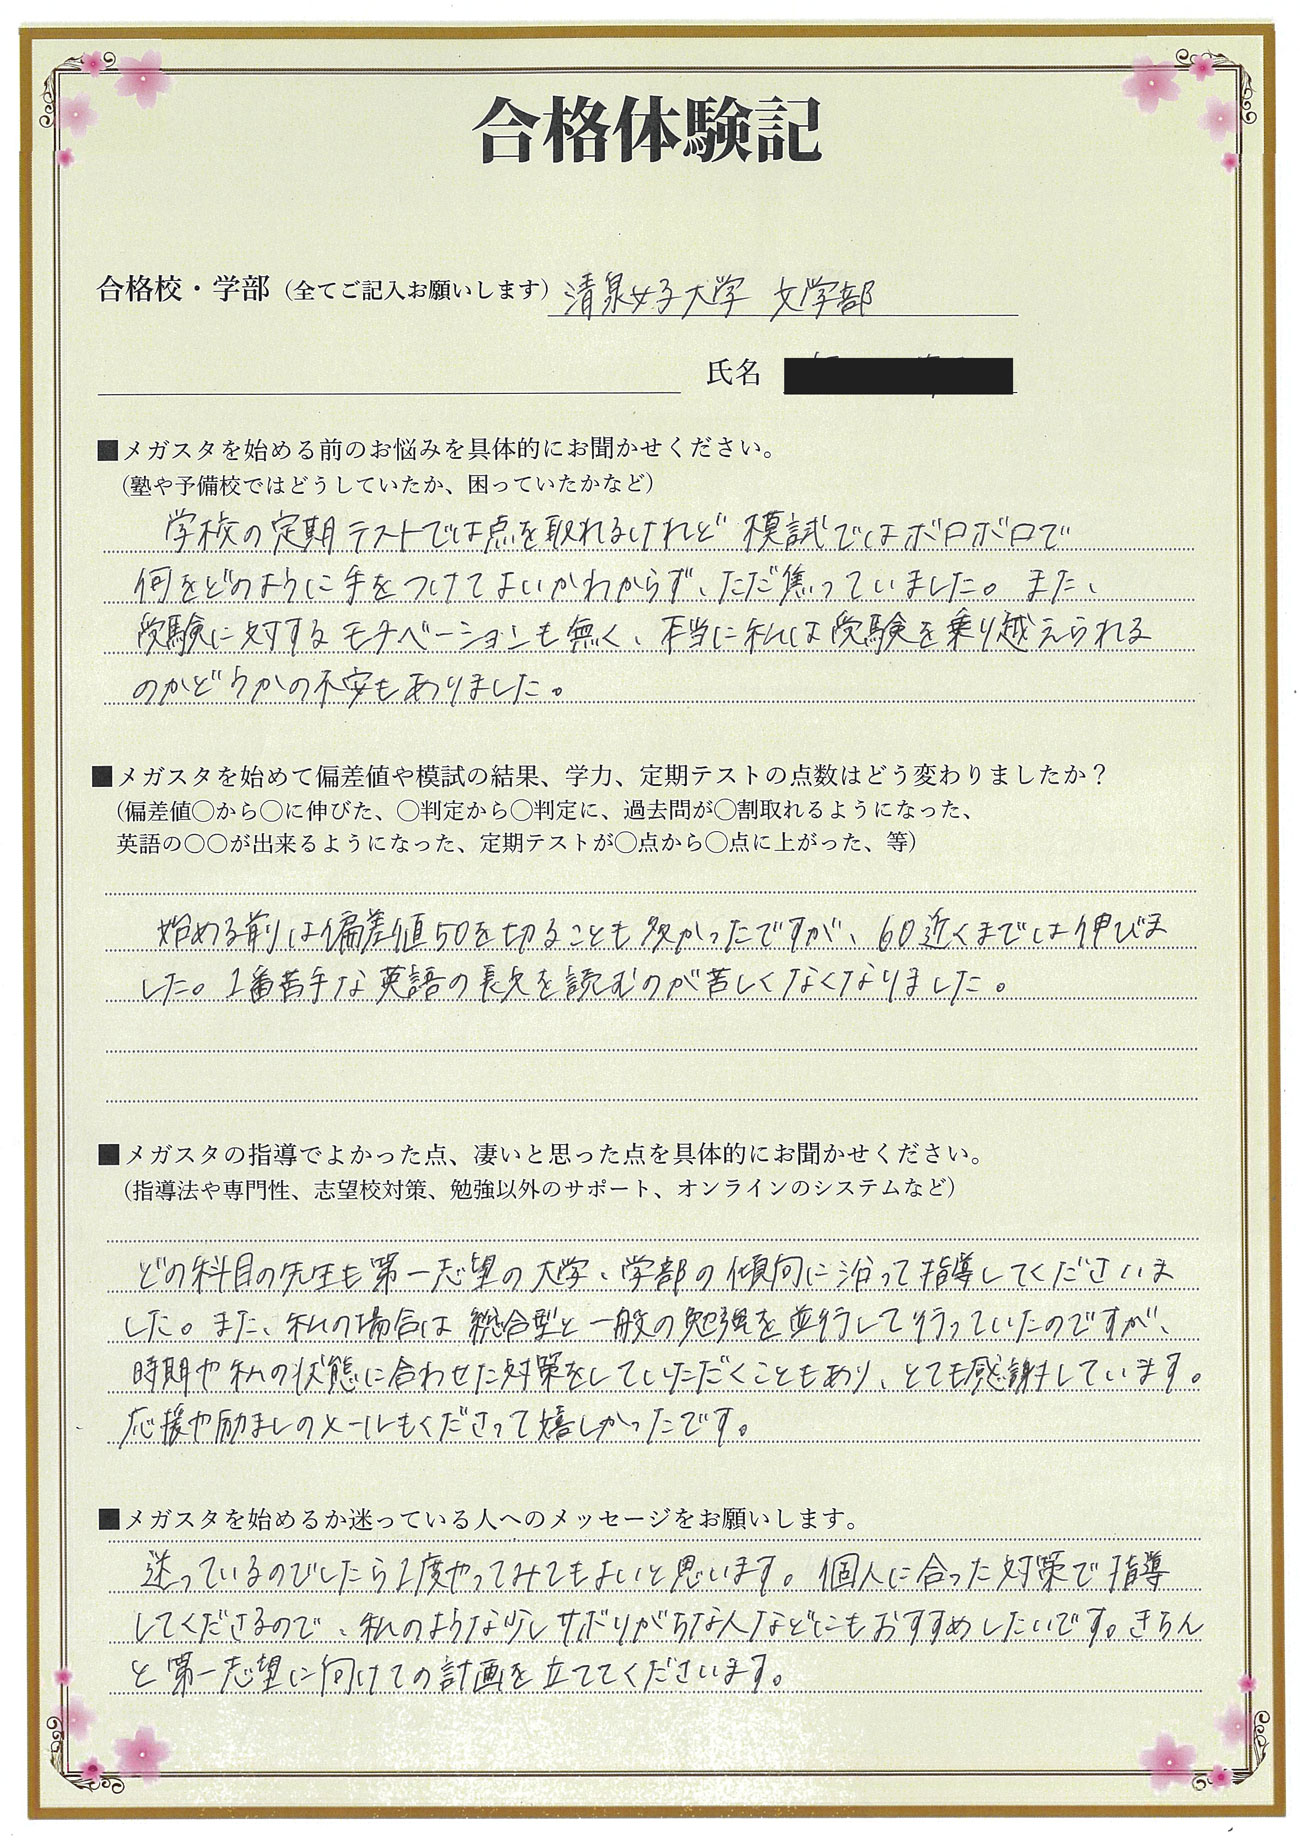 合格体験記
合格校・学部（全てご記入お願いします）清泉女子大学 文学部
氏名
■メガスタを始める前のお悩みを具体的にお聞かせください。
（塾や予備校ではどうしていたか、困っていたかなど）
学校の定期テストでは点を取れるけれど模試ではボロボロで
何をどのように手をつけてよいかわからず、ただ焦っていました。また、
受験に対するモチベーションも無く、本当に私は受験を乗り越えられる
のかどうかの不安もありました。
■メガスタを始めて偏差値や模試の結果、学力、定期テストの点数はどう変わりましたか？
（偏差値〇から〇に伸びた、〇判定から〇判定に、過去問が〇割取れるようになった、
英語の〇〇が出来るようになった、定期テストが〇点から〇点に上がった、等）
始める前は偏差値50を切ることも多かったですが、60近くまでは伸びま
した。1番苦手な英語の長文を読むのが苦しくなくなりました。
■メガスタの指導でよかった点、凄いと思った点を具体的にお聞かせください。
（指導法や専門性、志望校対策、勉強以外のサポート、オンラインのシステムなど）
どの科目の先生も第一志望の大学、学部の傾向に沿って指導してくださいま
した。また、私の場合は総合型と一般の勉強を並行して行っていたのですが、
時期や私の状態に合わせた対策をしていただくこともあり、とても感謝しています。
応援や励ましのメールもくださって嬉しかったです。
■メガスタを始めるか迷っている人へのメッセージをお願いします。
迷っているのでしたら1度やってみてもよいと思います。個人に合った対策で指導
してくださるので、私のような少しサボりがちな人などにもおすすめしたいです。きちん
と第一志望に向けての計画を立ててくださいます。